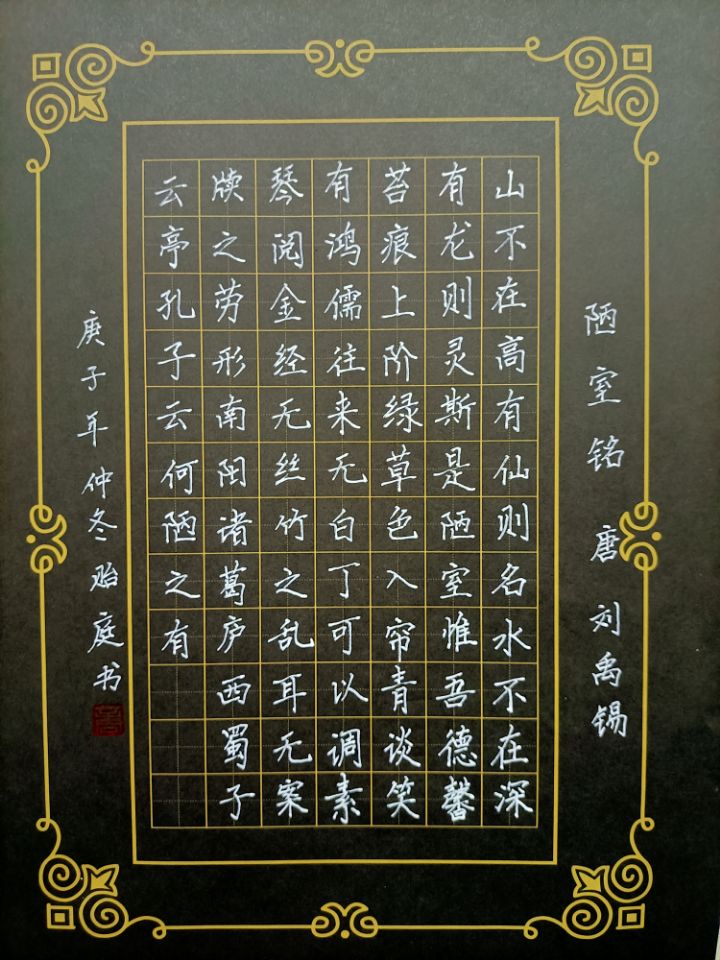 陋室铭 唐 刘禹锡
山不在高有仙则名水不在深
有龙则灵斯是陋室惟吾德馨
苔痕上阶绿草色入帘青谈笑
有鸿儒往来无白丁可以调素
琴阅金经无丝竹之乱耳无案
牍之劳形南阳诸葛庐西蜀子
云亭孔子云何陋之有
庚子年仲冬贻庭书